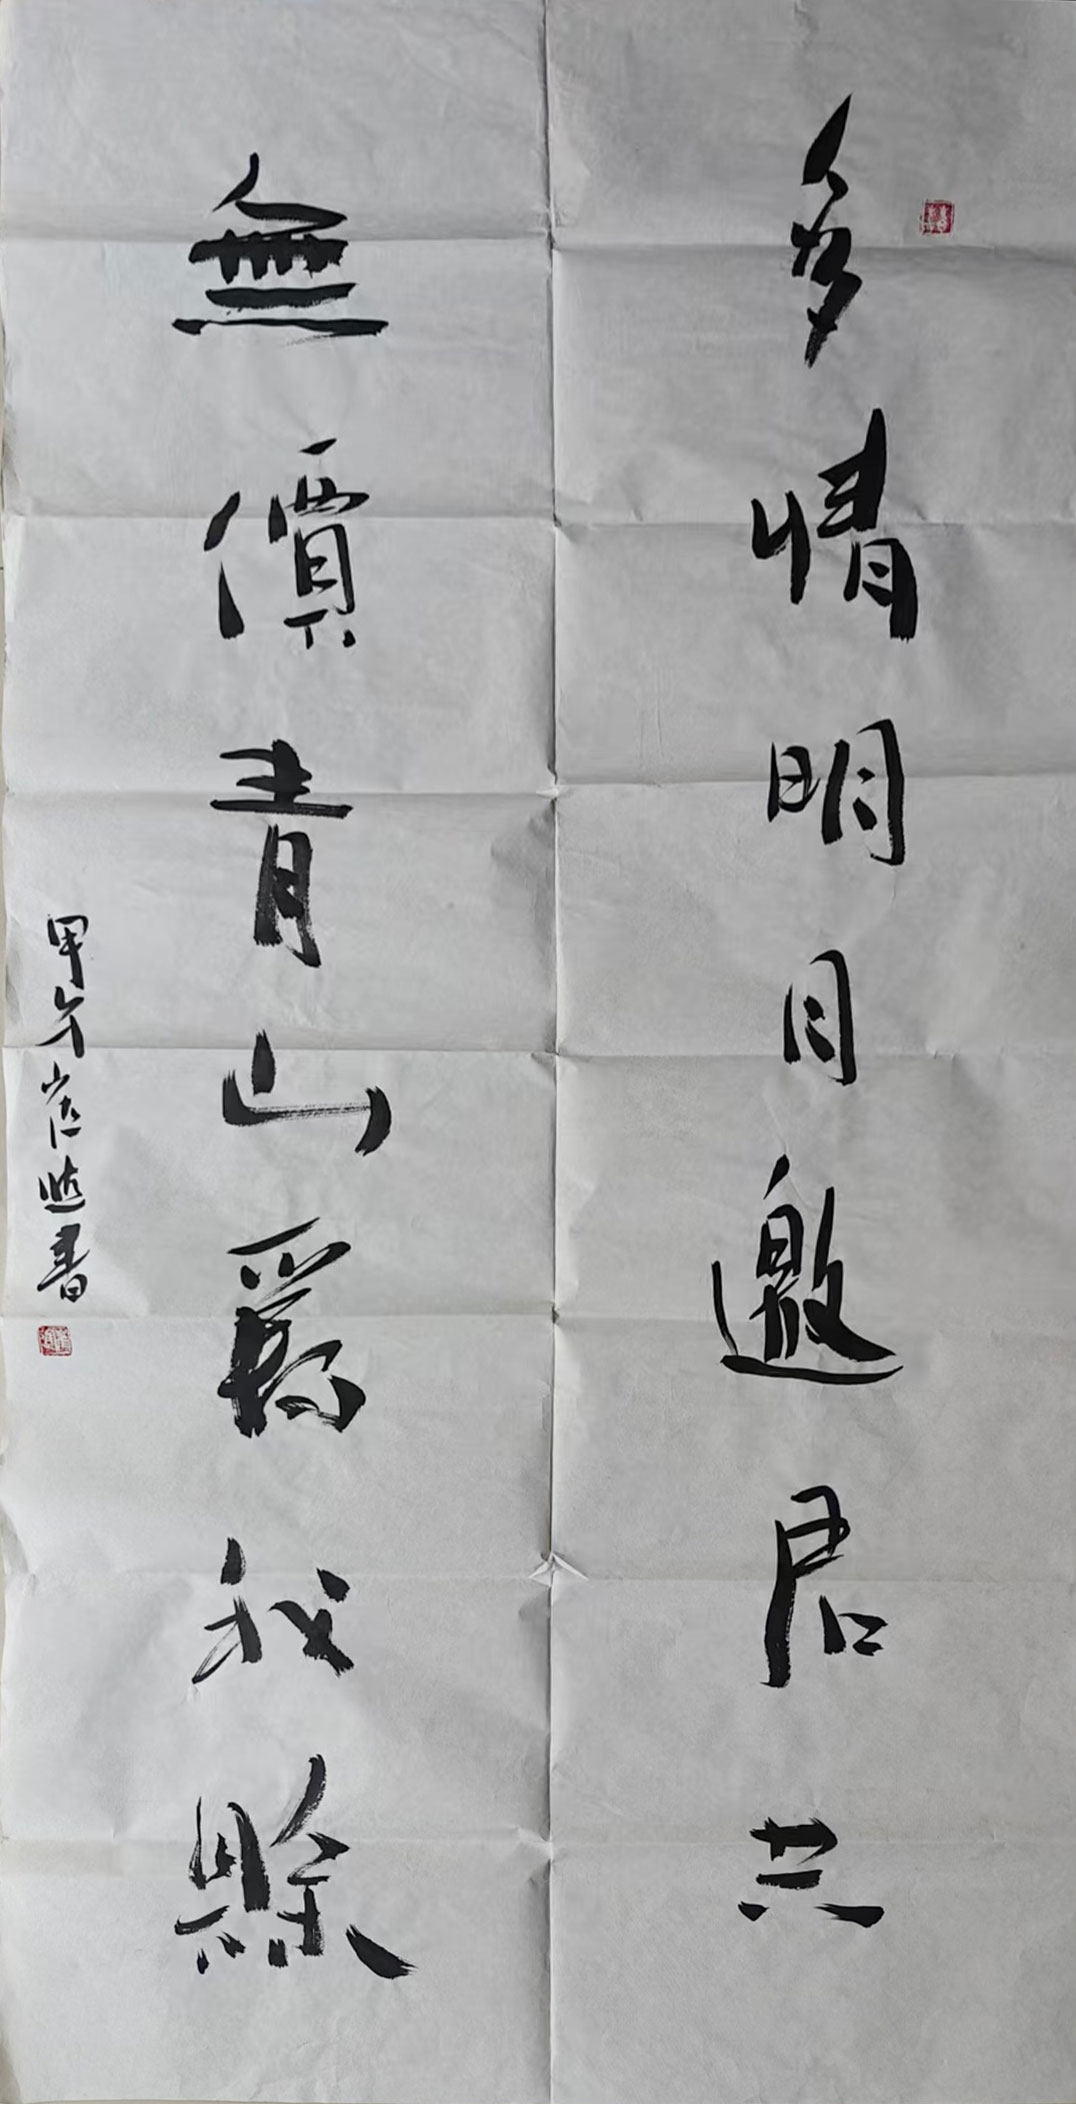 多情明月邀君共
無價青山爲我賒
甲午崔
書